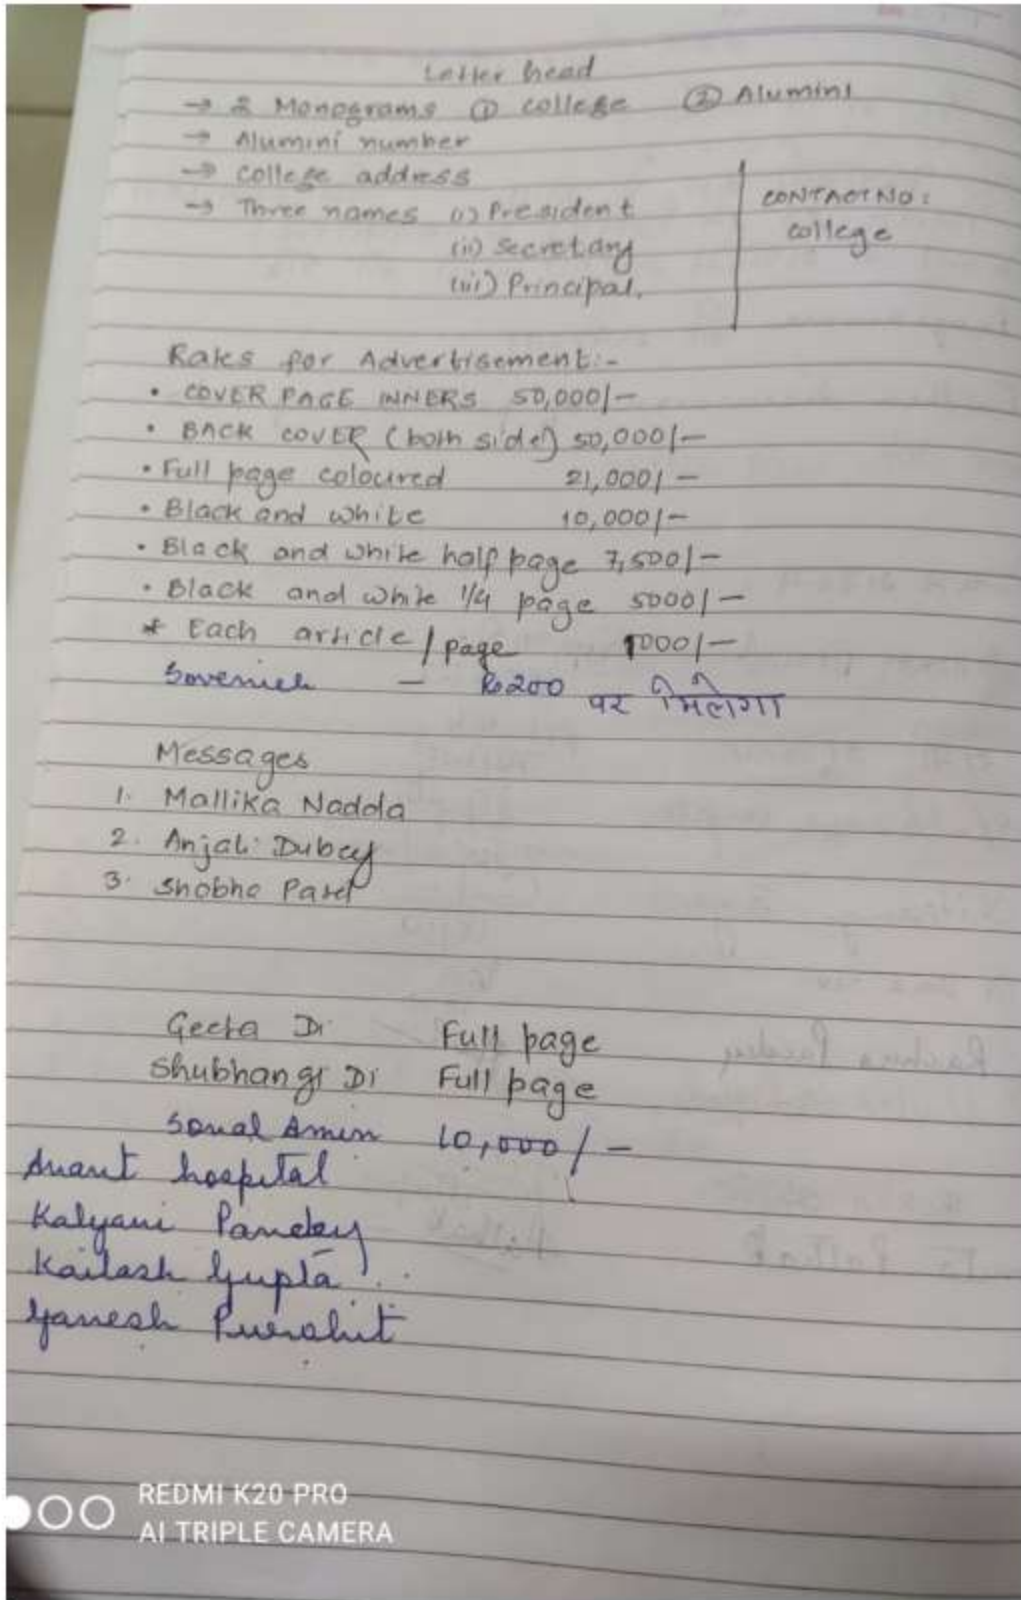 Letter head
→ 2 Monograms ① college ② Alumini
→ Alumini number
→ college address
→ Three names (i) President
(ii) Secretary
(iii) Principal.
CONTACT NO:
college
Rates for Advertisement:-
• COVER PAGE INNERS 50,000/-
• BACK COVER (both side) 50,000/-
• Full page coloured 21,000/-
• Black and white 10,000/-
• Black and white half page 7,500/-
• Black and white 1/4 page 5000/-
* Each article / page 1000/-
Sovenieh - Rs 200 पर मिलेगा
Messages
1. Mallika Nadda
2. Anjali Dubey
3. Shobha Patel
Geeta Di Full page
Shubhangi Di Full page
Sonal Amin 10,000/-
Anant hospital
Kalyani Pandey
Kailash Gupta
Ganesh Purohit
REDMI K20 PRO
AI TRIPLE CAMERA